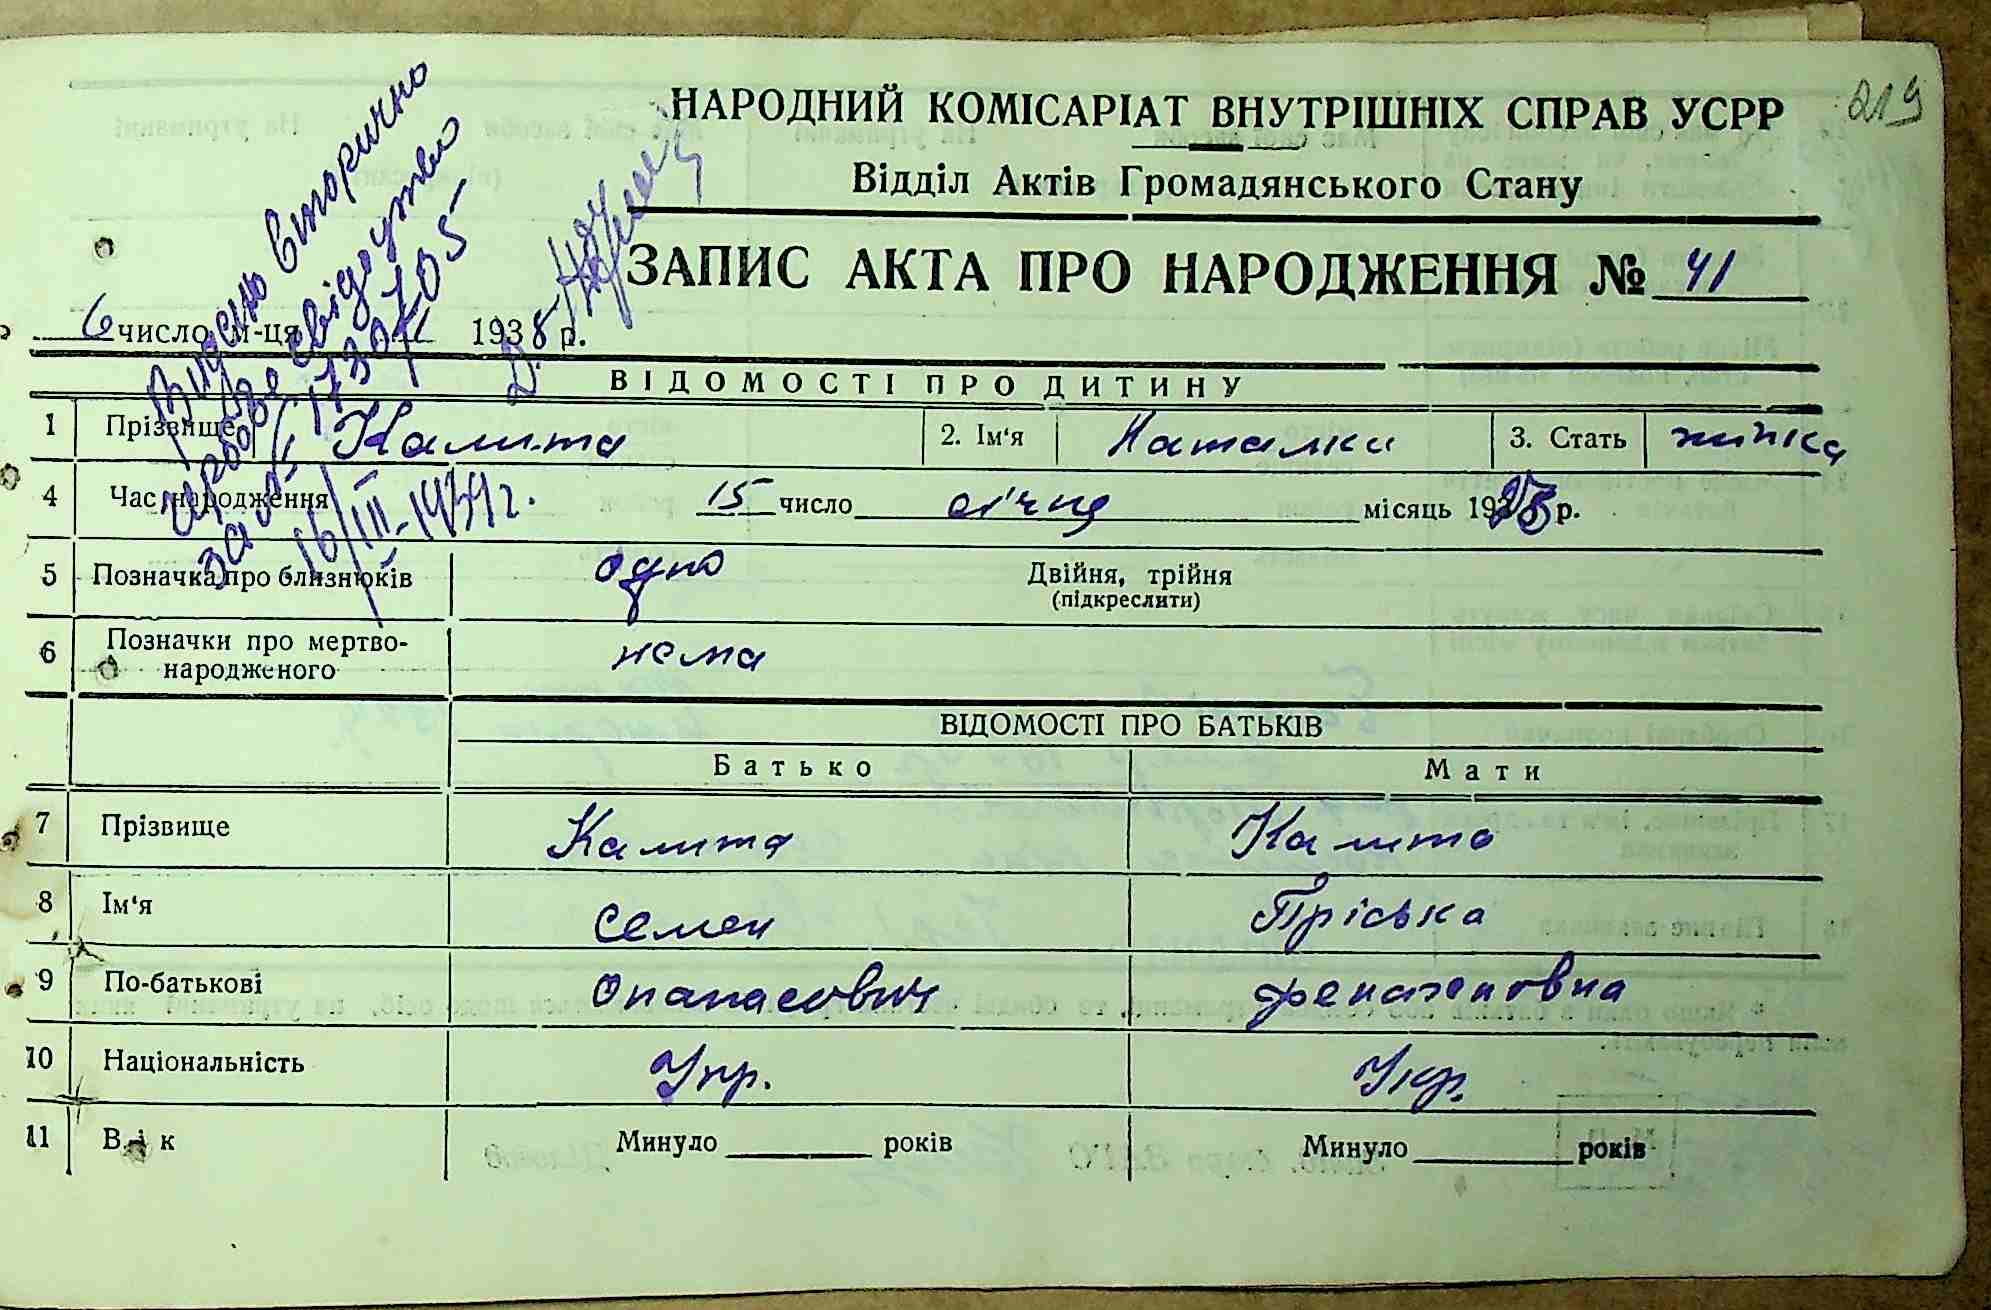 219
НАРОДНИЙ КОМІСАРІАТ ВНУТРІШНІХ СПРАВ УСРР
Відділ Актів Громадянського Стану
ЗАПИС АКТА ПРО НАРОДЖЕННЯ № 41
6 число м-ця 1938 р.
Видано вторично
свідоцтво
за №
173705
16/III-1939 г.
ВІДОМОСТІ ПРО ДИТИНУ
1 Прізвище Калита 2. Ім'я Наталки 3. Стать жінка
4 Час народження 15 число січня місяць 19 р.
5 Позначка про близнюків одно Двійня, трійня
(підкреслити)
6 Позначки про мертво-
народженого нема
ВІДОМОСТІ ПРО БАТЬКІВ
Батько Мати
7 Прізвище Калита Калита
8 Ім'я Семен Пріська
9 По-батькові Опанасович
10 Національність Укр. Укр.
11 Вік Минуло ______ років Минуло ______ років